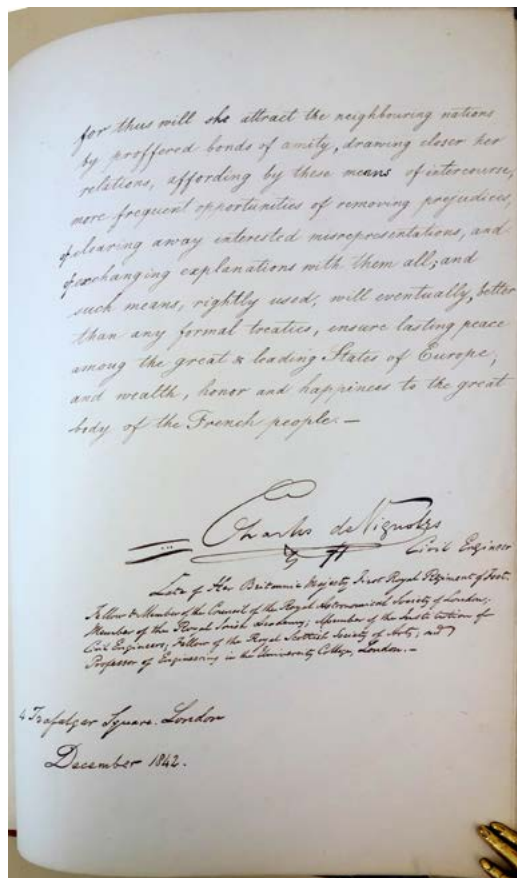 for thus will she attract the neighbouring nations
by proffered bonds of amity, drawing closer her
relations, affording by these means of intercourse,
more frequent opportunities of removing prejudices,
of clearing away interested misrepresentations, and
of exchanging explanations with them all; and
such means, rightly used, will eventually, better
than any formal treaties, ensure lasting peace
among the great & leading States of Europe,
and wealth, honor and happiness to the great
body of the French people. —
Charles de Vignoles
Civil Engineer
Late of Her Britannic Majesty First Royal Regiment of Foot.
Fellow & Member of the Council of the Royal Astronomical Society of London;
Member of the Royal Irish Academy; Member of the Institution of
Civil Engineers; Fellow of the Royal Scottish Society of Arts; and
Professor of Engineering in the University College, London. —
4 Trafalgar Square. London
December 1842.